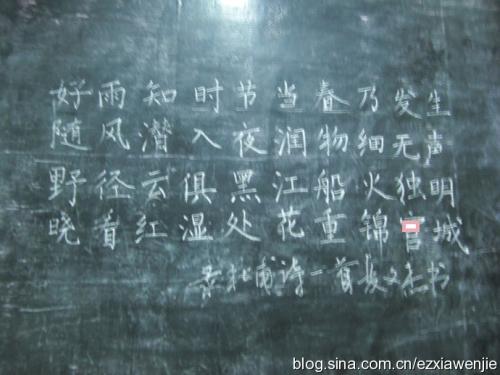 好雨知时节当春乃发生
随风潜入夜润物细无声
野径云俱黑江船火独明
晓看红湿处花重锦官城
录杜甫诗一首夏文杰书
blog.sina.com.cn/ezxiawenjie